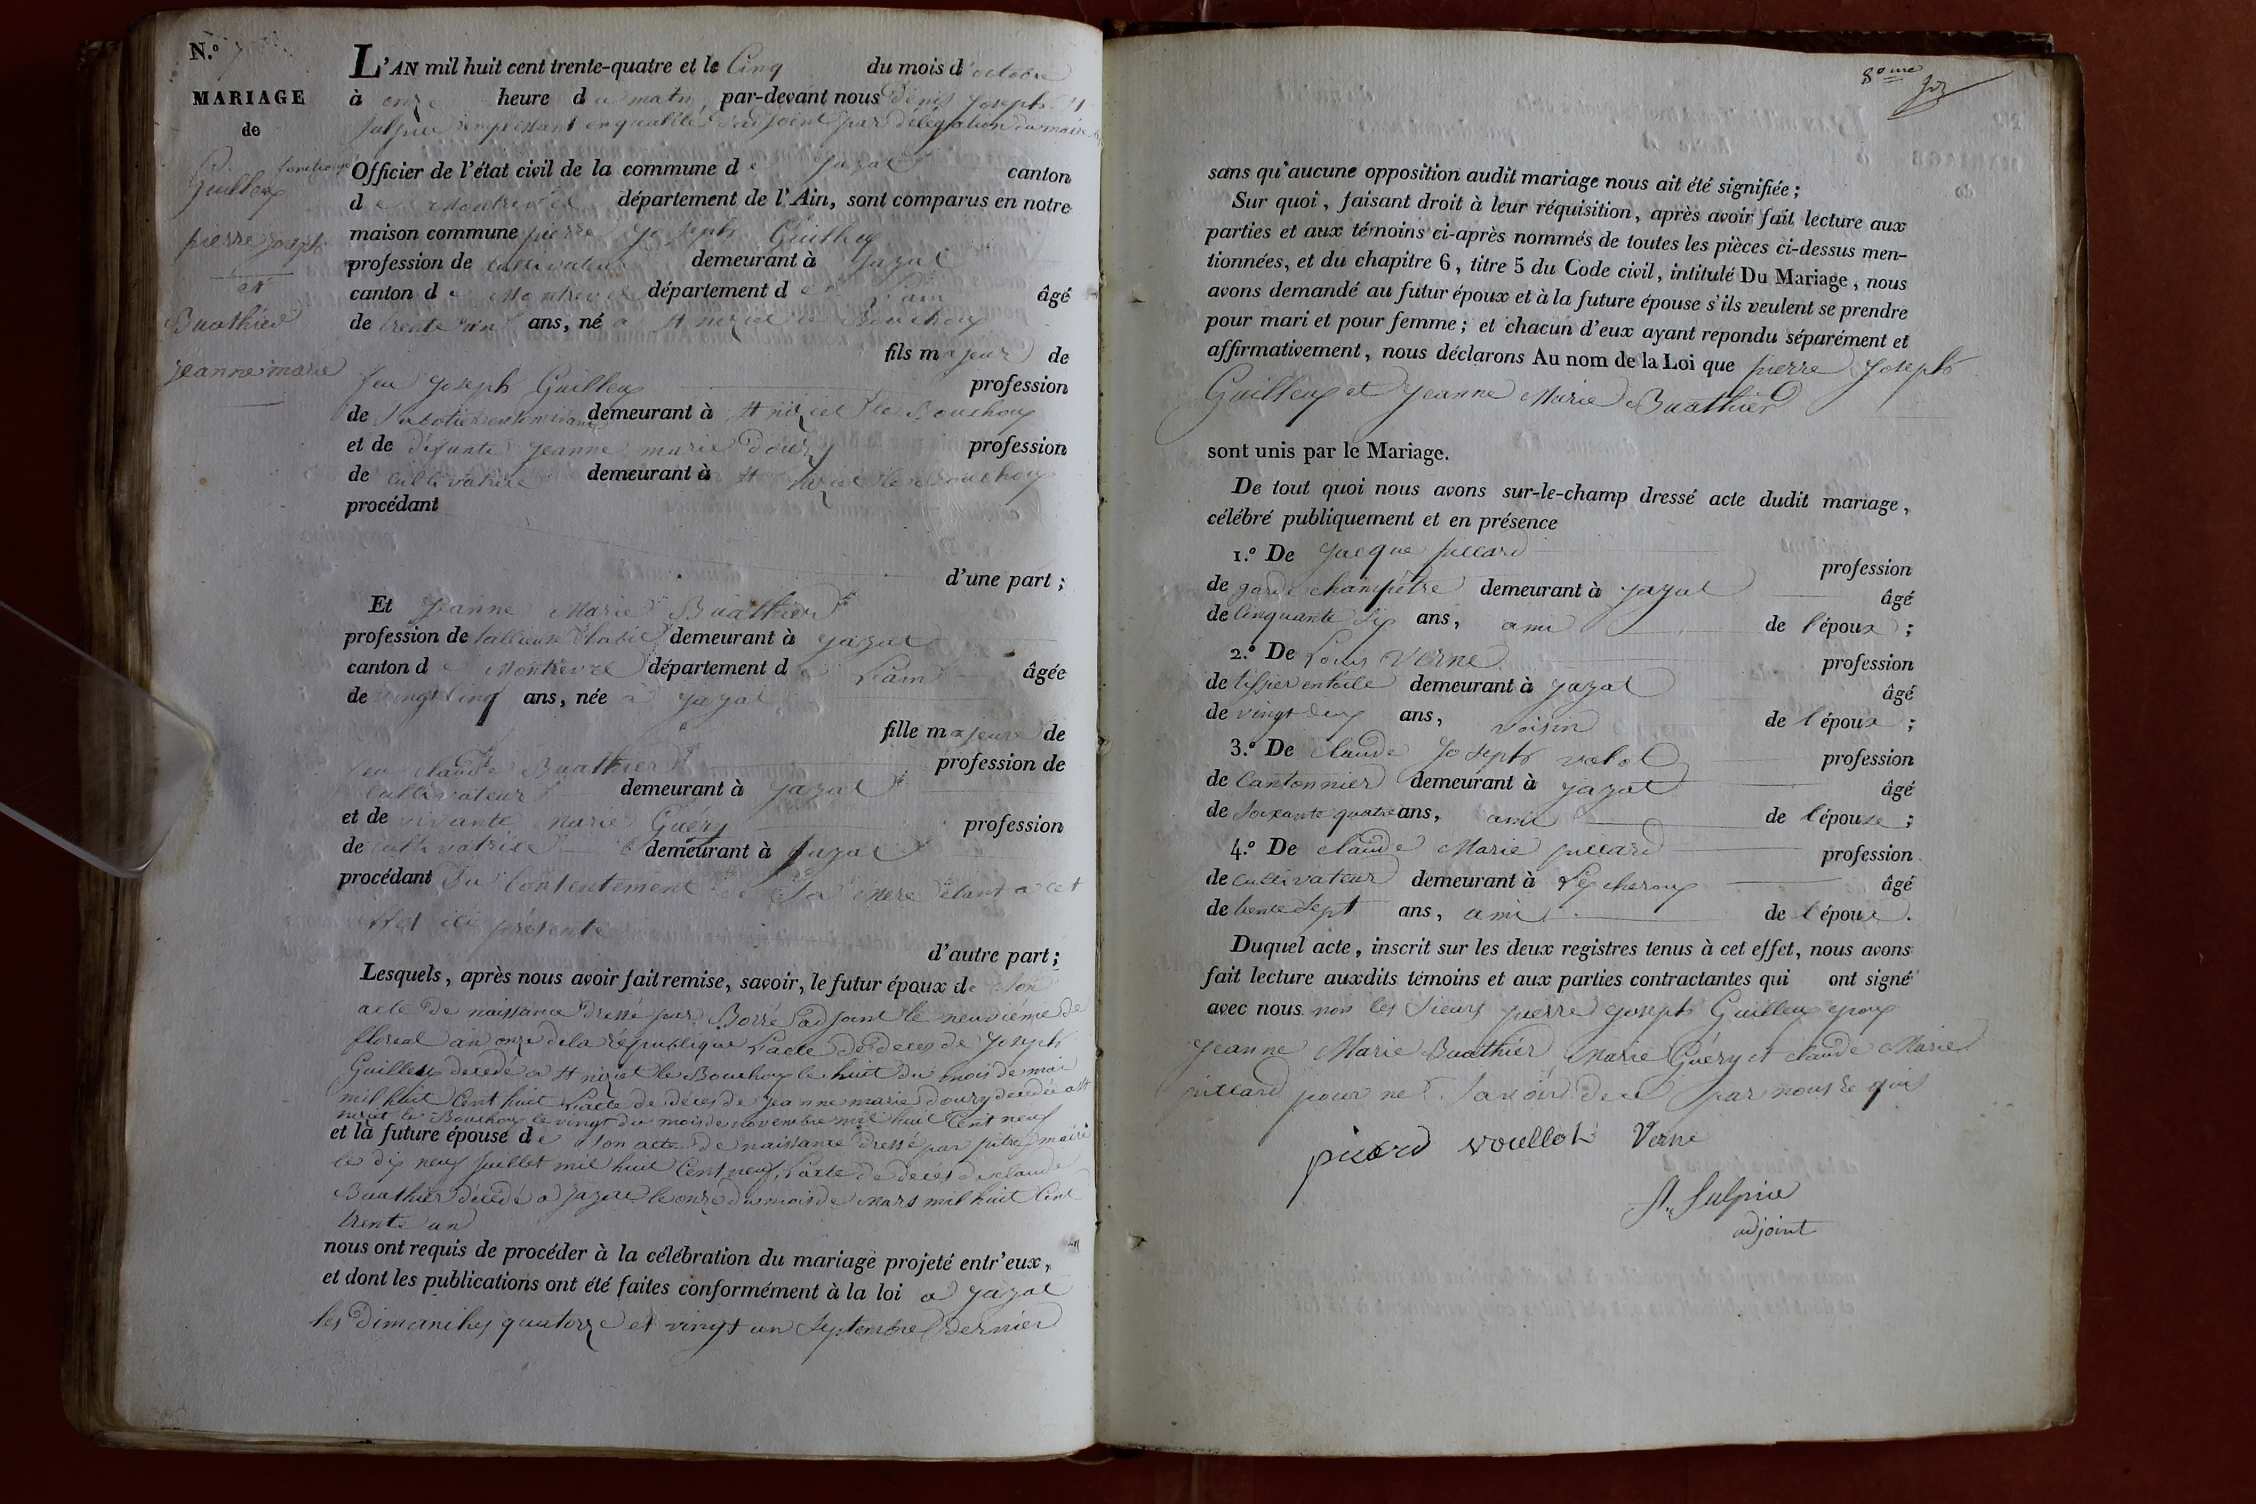 N.º 7
MARIAGE
de
Guilleux
pierre joseph
et
Buathier
jeanne marie
L'AN mil huit cent trente-quatre et le Cinq du mois d'octobre
à onze heure du matin, par-devant nous Denis Joseph St
Sulpice remplissant en qualité d'adjoint par délégation du maire les
fonctions
Officier de l'état civil de la commune de jayat canton
de Montrevel département de l'Ain, sont comparus en notre
maison commune pierre joseph Guilleux
profession de cultivateur demeurant à jayat
canton de Montrevel département de L'ain âgé
de trente un ans, né à St nizier le Bouchoux
fils majeur de
feu joseph Guilleux profession
de Sabotier en son vivant demeurant à St nizier le Bouchoux
et de défunte jeanne marie doury profession
de cultivatrice demeurant à St nizier le Bouchoux
procédant
d'une part ;
Et Jeanne Marie Buathier
profession de tailleuse d'habit demeurant à jayat
canton de Montrevel département de L'ain âgée
de vingt cinq ans, née à jayat
fille majeure de
feu claude Buathier profession de
cultivateur demeurant à jayat
et de vivante Marie Guéry profession
de cultivatrice demeurant à jayat
procédant Du Contentement de Sa Mere étant a cet
effet ici présente
d'autre part ;
Lesquels, après nous avoir fait remise, savoir, le futur époux de Son
acte de naissance dressé par Borré adjoint le neuvième de
floreal an onze de la république L'acte de deces de Joseph
Guilleux decedé a St nizier le Bouchoux le huit du mois de mai
mil huit Cent huit L'acte de déces de jeanne marie doury decedée a St
nizier le Bouchoux le vingt du mois de novembre mil huit Cent neuf
et la future épouse de son acte de naissance dressé par pitre maire
le dix neuf juillet mil huit Cent neuf, L'acte de deces de claude
Buathier décédé a jayat le onze du mois de Mars mil huit Cent
trente un
nous ont requis de procéder à la célébration du mariage projeté entr'eux,
et dont les publications ont été faites conformément à la loi a jayat
les Dimanches quatorze et vingt un Septembre dernier
8.me
sans qu'aucune opposition audit mariage nous ait été signifiée ;
Sur quoi, faisant droit à leur réquisition, après avoir fait lecture aux
parties et aux témoins ci-après nommés de toutes les pièces ci-dessus men-
tionnées, et du chapitre 6, titre 5 du Code civil, intitulé Du Mariage, nous
avons demandé au futur époux et à la future épouse s'ils veulent se prendre
pour mari et pour femme ; et chacun d'eux ayant repondu séparément et
affirmativement, nous déclarons Au nom de la Loi que pierre Joseph
Guilleux et Jeanne Marie Buathier
sont unis par le Mariage.
De tout quoi nous avons sur-le-champ dressé acte dudit mariage,
célébré publiquement et en présence
1.º De Jacque piccard profession
de garde champêtre demeurant à jayat âgé
de Cinquante Six ans, ami de l'époux ;
2.º De Louis Verne profession
de tissier en toile demeurant à jayat âgé
de vingt deux ans, voisin de l'époux ;
3.º De claude Joseph profession
de Cantonnier demeurant à jayat âgé
de Soixante quatre ans, ami de l'épouse ;
4.º De claude Marie piccard profession
de cultivateur demeurant à Lescheroux âgé
de trente Sept ans, ami de l'épouse.
Duquel acte, inscrit sur les deux registres tenus à cet effet, nous avons
fait lecture auxdits témoins et aux parties contractantes qui ont signé
avec nous non les Sieurs pierre joseph Guilleux epoux
Jeanne Marie Buathier, Marie Guéry et claude Marie
piccard pour ne Savoir de ce par nous requis
picard voullot Verne
St. Sulpice
adjoint